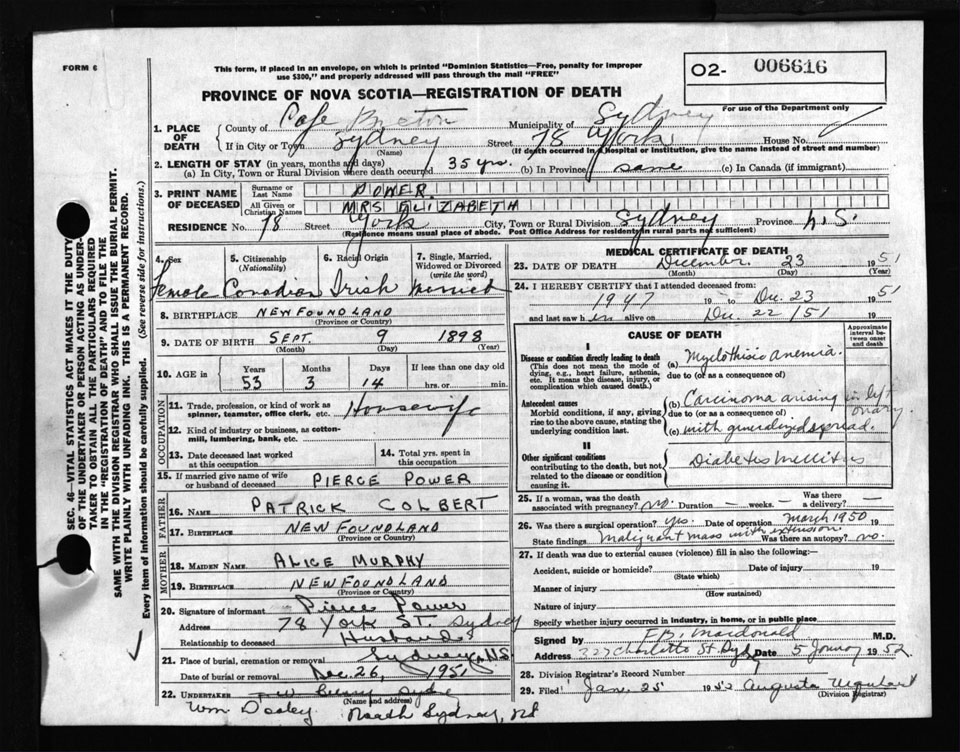 FORM 6
This form, if placed in an envelope, on which is printed "Dominion Statistics—Free, penalty for improper
use $300," and properly addressed will pass through the mail "FREE"
O2- 006616
For use of the Department only
PROVINCE OF NOVA SCOTIA—REGISTRATION OF DEATH
1. PLACE OF DEATH
County of Cape Breton Municipality of Sydney
If in City or Town Sydney Street 78 York House No.
(Name) (If death occurred in a Hospital or Institution, give the name instead of street and number)
2. LENGTH OF STAY (in years, months and days)
(a) In City, Town or Rural Division where death occurred 35 yrs. (b) In Province same (c) In Canada (if immigrant)
3. PRINT NAME OF DECEASED
Surname or Last Name POWER
All Given or Christian Names MRS ELIZABETH
RESIDENCE No. 78 Street York City, Town or Rural Division Sydney Province N.S.
(Residence means usual place of abode. Post Office Address for residents in rural parts not sufficient)
4. Sex Female
5. Citizenship (Nationality) Canadian
6. Racial Origin Irish
7. Single, Married, Widowed or Divorced (write the word) Married
8. BIRTHPLACE NEWFOUNDLAND
(Province or Country)
9. DATE OF BIRTH SEPT. 9 1898
(Month) (Day) (Year)
10. AGE in Years 53 Months 3 Days 14 If less than one day old hrs. or min.
OCCUPATION
11. Trade, profession, or kind of work as spinner, teamster, office clerk, etc. Housewife
12. Kind of industry or business, as cotton-mill, lumbering, bank, etc.
13. Date deceased last worked at this occupation
14. Total yrs. spent in this occupation
15. If married give name of wife or husband of deceased PIERCE POWER
FATHER
16. NAME PATRICK COLBERT
17. BIRTHPLACE NEWFOUNDLAND
(Province or Country)
MOTHER
18. MAIDEN NAME ALICE MURPHY
19. BIRTHPLACE NEWFOUNDLAND
(Province or Country)
20. Signature of informant Pierce Power
Address 78 York ST. Sydney
Relationship to deceased Husband
21. Place of burial, cremation or removal Sydney N.S
Date of burial or removal Dec. 26, 1951
22. UNDERTAKER
(Name and address)
Wm Dooley North Sydney, Rd
MEDICAL CERTIFICATE OF DEATH
23. DATE OF DEATH December 23 1951
(Month) (Day) (Year)
24. I HEREBY CERTIFY that I attended deceased from:
1947 19 to Dec. 23 1951
and last saw her alive on Dec 22/51 19
CAUSE OF DEATH
Approximate interval between onset and death
I
Disease or condition directly leading to death
(This does not mean the mode of dying, e.g., heart failure, asthenia, etc. It means the disease, injury, or complication which caused death.)
(a) Myelothisic Anemia.
due to (or as a consequence of)
Antecedent causes
Morbid conditions, if any, giving rise to the above cause, stating the underlying condition last.
(b) Carcinoma arising in left ovary
due to (or as a consequence of)
(c) with generalized spread.
II
Other significant conditions
contributing to the death, but not related to the disease or condition causing it.
Diabetes Mellitus
25. If a woman, was the death associated with pregnancy? no. Duration weeks. Was there a delivery?
26. Was there a surgical operation? yes. Date of operation March 1950 19
State findings Malignant mass with extension Was there an autopsy? no.
27. If death was due to external causes (violence) fill in also the following:—
Accident, suicide or homicide? Date of injury 19
(State which)
Manner of injury
(How sustained)
Nature of injury
Specify whether injury occurred in industry, in home, or in public place
Signed by F.B. Macdonald M.D.
Address 327 Charlotte St Syd Date 5 January 1952
28. Division Registrar's Record Number
29. Filed Jan 25 1952 Augusta Urquhart
(Division Registrar)
SEC. 46—VITAL STATISTICS ACT MAKES IT THE DUTY
OF THE UNDERTAKER OR PERSON ACTING AS UNDER-
TAKER TO OBTAIN ALL THE PARTICULARS REQUIRED
IN THE "REGISTRATION OF DEATH" AND TO FILE THE
SAME WITH THE DIVISION REGISTRAR WHO SHALL ISSUE THE BURIAL PERMIT.
WRITE PLAINLY WITH UNFADING INK. THIS IS A PERMANENT RECORD.
Every item of information should be carefully supplied. (See reverse side for instructions.)